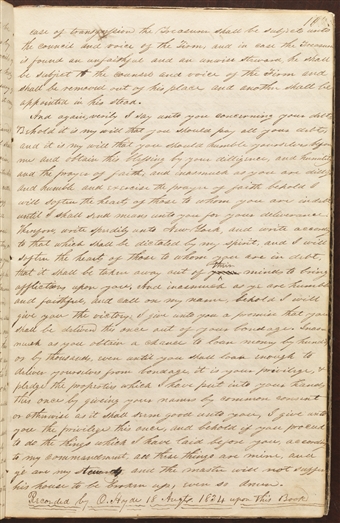 107
case of transgression the Treasurer shall be subject unto
the council and voice of the Firm, and in case the Treasurer
is found an unfaithful and an unwise steward, he shall
be subject to the counsel and voice of the Firm and
shall be removed out of his place and another shall be
appointed in his stead.
And again, verily I say unto you concerning your debts,
Behold it is my will that you should pay all your debts,
and it is my will that you should humble yourselves before
me and obtain this blessing by your diligence, and humility
and the prayer of faith, and inasmuch as you are diligent
and humble and exercise the prayer of faith behold I
will soften the heart of those to whom you are in debt
until I shall send means unto you for your deliverance
therefore write speedily unto New York, and write according
to that which shall be dictated by my spirit, and I will
soften the heart of those to whom you are in debt,
that it shall be taken away out of their minds to bring
afflictions upon you, and inasmuch as ye are humble
and faithful, and call on my name, behold I will
give you the victory; I give unto you a promise that you
shall be delivered this once out of your bondage. Inas
much as you obtain a chance to loan money by hundreds
or by thousands, even until you shall loan enough to
deliver yourselves from bondage it is your privilege, &
pledge the properties which I have put into your hands
this once by giving your names by common consent
or otherwise as it shall seem good unto you, I give unto
you the privilege this once, and behold if you proceed
to do the things which I have laid before you, according
to my commandment, all these things are mine, and
ye are my Stewards, and the master will not suffer
his house to be broken up, even so Amen.
Recorded by O. Hyde 18 Augt. 1834 upon this Book